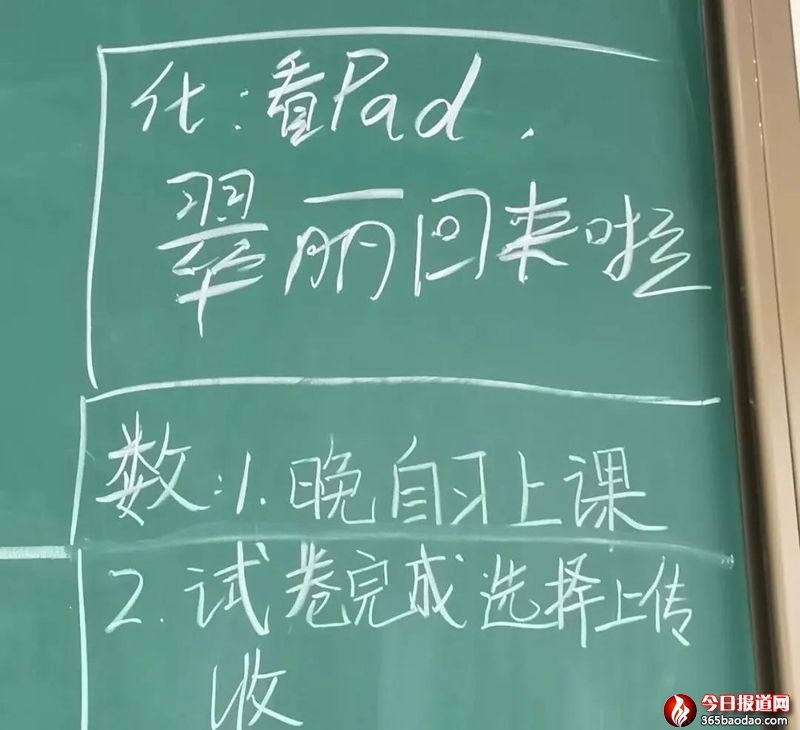 化:看Pad.
翠丽回来啦
数:1.晚自习上课
2.试卷完成选择上传
收
今日报道网
365baodao.com